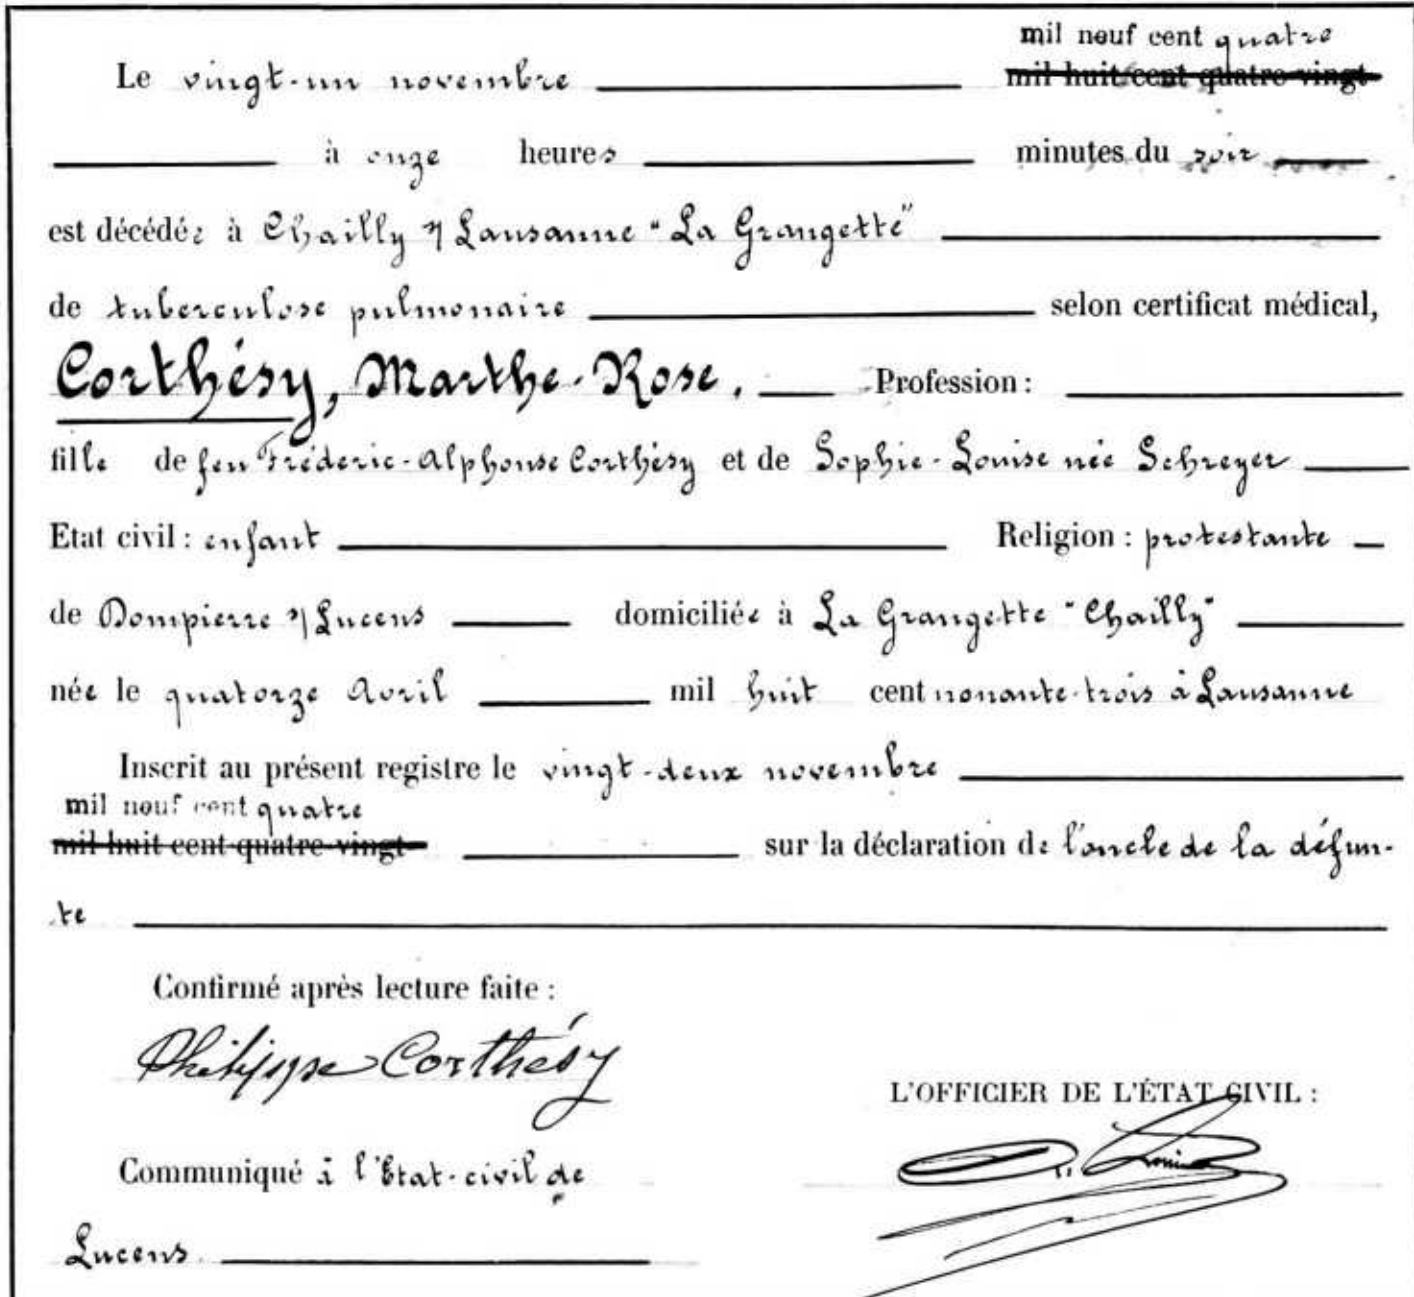 mil neuf cent quatre
Le vingt-un novembre mil huit cent quatre-vingt
à onze heures minutes du soir
est décédée à Chailly s/ Lausanne "La Grangette"
de tuberculose pulmonaire selon certificat médical,
Corthésy, Marthe-Rose. Profession :
fille de feu Fréderic-Alphonse Corthésy et de Sophie-Louise née Schreyer
Etat civil : enfant Religion : protestante
de Dompierre s/ Lucens domiciliée à La Grangette "Chailly"
née le quatorze Avril mil huit cent nonante-trois à Lausanne
Inscrit au présent registre le vingt-deux novembre
mil neuf cent quatre
mil huit cent quatre-vingt sur la déclaration de l'oncle de la défun-
te
Confirmé après lecture faite :
Philippe Corthésy
L'OFFICIER DE L'ÉTAT CIVIL :
Communiqué à l'Etat-civil de
Lucens.